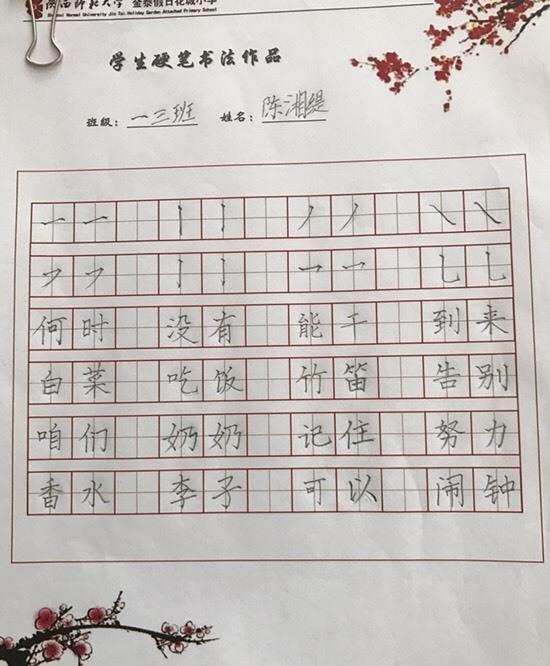 陕西师范大学 金泰假日花城小学
Shaanxi Normal University Jin Tai Holiday Garden Attached Primary School
学生硬笔书法作品
班级：一三班 姓名：陈湘缇
一 一 丨 丨 丿 丿 ㇏ ㇏
何时 没有 能干 到来
白菜 吃饭 竹笛 告别
咱们 奶奶 记住 努力
香水 李子 可以 闹钟